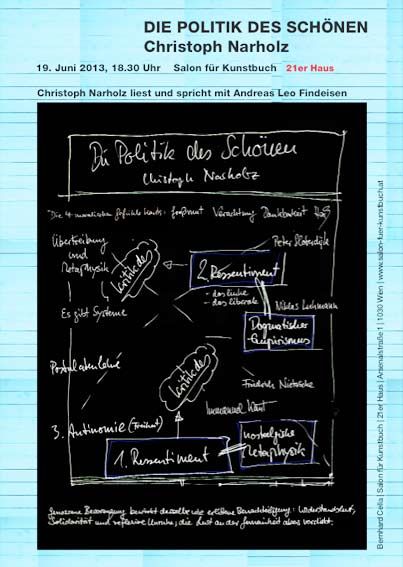 DIE POLITIK DES SCHÖNEN
Christoph Narholz
19. Juni 2013, 18.30 Uhr Salon für Kunstbuch 21er Haus
Christoph Narholz liest und spricht mit Andreas Leo Findeisen
Die Politik des Schönen
Christoph Narholz
Die 4 Verachtung Dankbarkeit
Übertreibung
und
Metaphysik
Kritik des
Peter Sloterdijk
2. Ressentiment
- das linke
- das liberale
Niklas Luhmann
Es gibt Systeme
Dogmatischer
Empirismus
Postulatenlehre
Kritik des
Friedrich Nietzsche
Immanuel Kant
3. Antinomie (Freiheit)
1. Ressentiment
nostalgische
Metaphysik
Solidarität und reflexive Unruhe; die Lust an der
Bernhard Cella | Salon für Kunstbuch | 21er Haus | Arsenalstraße 1 | 1030 Wien | www.salon-fuer-kunstbuch.at